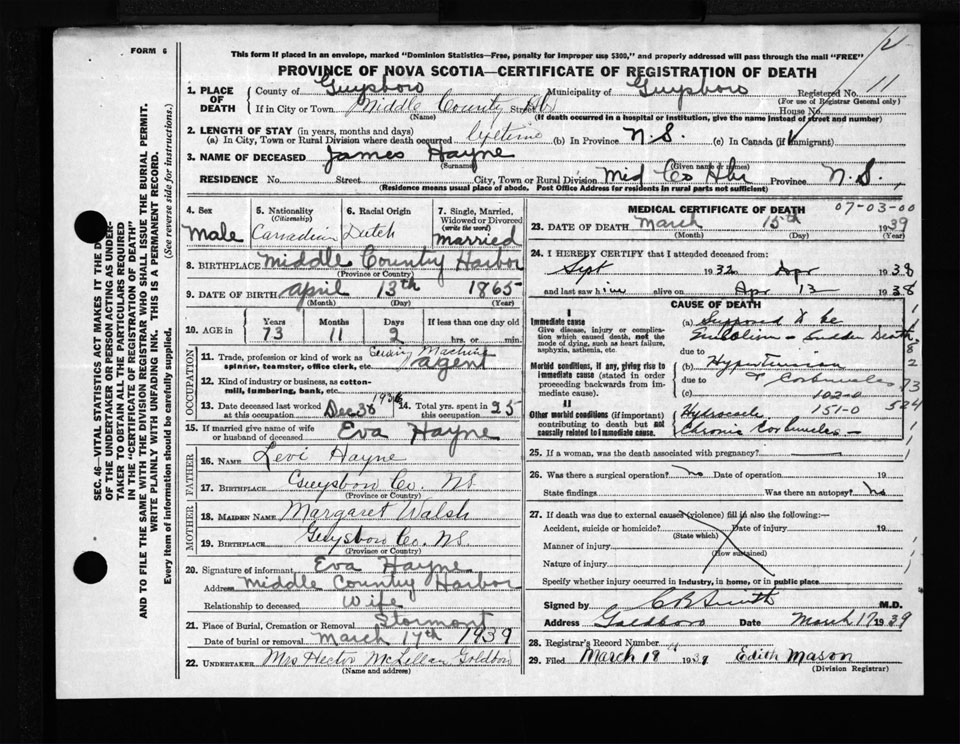 FORM 6
This form if placed in an envelope, marked "Dominion Statistics—Free, penalty for improper use $300," and properly addressed will pass through the mail "FREE"
PROVINCE OF NOVA SCOTIA—CERTIFICATE OF REGISTRATION OF DEATH
1. PLACE OF DEATH County of Guysboro Municipality of Guysboro Registered No. 11
(For use of Registrar General only)
If in City or Town Middle County Hbr Street House No.
(Name) (If death occurred in a hospital or institution, give the name instead of street and number)
2. LENGTH OF STAY (in years, months and days)
(a) In City, Town or Rural Division where death occurred lifetime (b) In Province N.S. (c) In Canada (if immigrant)
3. NAME OF DECEASED James Hayne
(Surname) (Given name or names)
RESIDENCE No. Street City, Town or Rural Division Mid Co Hbr Province N.S.
(Residence means usual place of abode. Post Office Address for residents in rural parts not sufficient)
SEC. 46—VITAL STATISTICS ACT MAKES IT THE DUTY
OF THE UNDERTAKER OR PERSON ACTING AS UNDER-
TAKER TO OBTAIN ALL THE PARTICULARS REQUIRED
IN THE "CERTIFICATE OF REGISTRATION OF DEATH"
AND TO FILE THE SAME WITH THE DIVISION REGISTRAR WHO SHALL ISSUE THE BURIAL PERMIT.
WRITE PLAINLY WITH UNFADING INK. THIS IS A PERMANENT RECORD.
Every item of information should be carefully supplied. (See reverse side for instructions.)
4. Sex Male
5. Nationality (Citizenship) Canadian
6. Racial Origin Dutch
7. Single, Married, Widowed or Divorced (write the word) Married
8. BIRTHPLACE Middle Country Harbor
(Province or Country)
9. DATE OF BIRTH April 13th 1865
(Month) (Day) (Year)
10. AGE in Years 73 Months 11 Days 2 If less than one day old hrs. or min.
OCCUPATION
11. Trade, profession or kind of work as spinner, teamster, office clerk, etc. Machine agent
12. Kind of industry or business, as cotton-mill, lumbering, bank, etc.
13. Date deceased last worked at this occupation Dec 38 14. Total yrs. spent in this occupation 25
15. If married give name of wife or husband of deceased Eva Hayne
FATHER
16. NAME Levi Hayne
17. BIRTHPLACE Guysboro Co. NS
(Province or Country)
MOTHER
18. MAIDEN NAME Margaret Walsh
19. BIRTHPLACE Guysboro Co. NS.
(Province or Country)
20. Signature of informant Eva Hayne
Address Middle Country Harbor
Relationship to deceased Wife
21. Place of Burial, Cremation or Removal Stormont
Date of burial or removal March 17th 1939
22. UNDERTAKER Mrs Hector McLellan Goldboro
(Name and address)
MEDICAL CERTIFICATE OF DEATH 07-03-00
23. DATE OF DEATH March 15th 1939
(Month) (Day) (Year)
24. I HEREBY CERTIFY that I attended deceased from:
Sept 1932 to Apr 1938
and last saw him alive on Apr 13 1938
CAUSE OF DEATH
I
Immediate cause
Give disease, injury or complication which caused death, not the mode of dying, such as heart failure, asphyxia, asthenia, etc.
(a) Supposed to be Embolism - Sudden Death
due to
Morbid conditions, if any, giving rise to immediate cause (stated in order proceeding backwards from immediate cause).
(b) Hypertension
due to & Carbuncles
(c) 102-0
II
Other morbid conditions (if important) contributing to death but not causally related to immediate cause.
Hydrocele 151-0
Chronic Carbuncles -
25. If a woman, was the death associated with pregnancy?
26. Was there a surgical operation? No Date of operation 19
State findings Was there an autopsy? No
27. If death was due to external causes (violence) fill in also the following:—
Accident, suicide or homicide? Date of injury 19
(State which)
Manner of injury
(How sustained)
Nature of injury
Specify whether injury occurred in industry, in home, or in public place
Signed by C B Smith M.D.
Address Goldboro Date March 17 1939
28. Registrar's Record Number 11
29. Filed March 18 1939 Edith Mason
(Division Registrar)